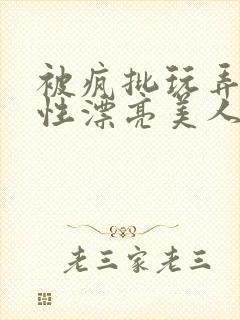 被疯批玩弄
性漂亮美人
老三家老三